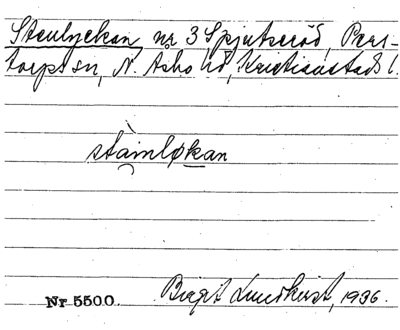 Stenlyckan, nr 3 Spjutseröd, Pers-
torps sn, N. Åsbo hd, Kristianstads l.
stàinløkan
Nr 5500. Birgit Lundkvist, 1936.